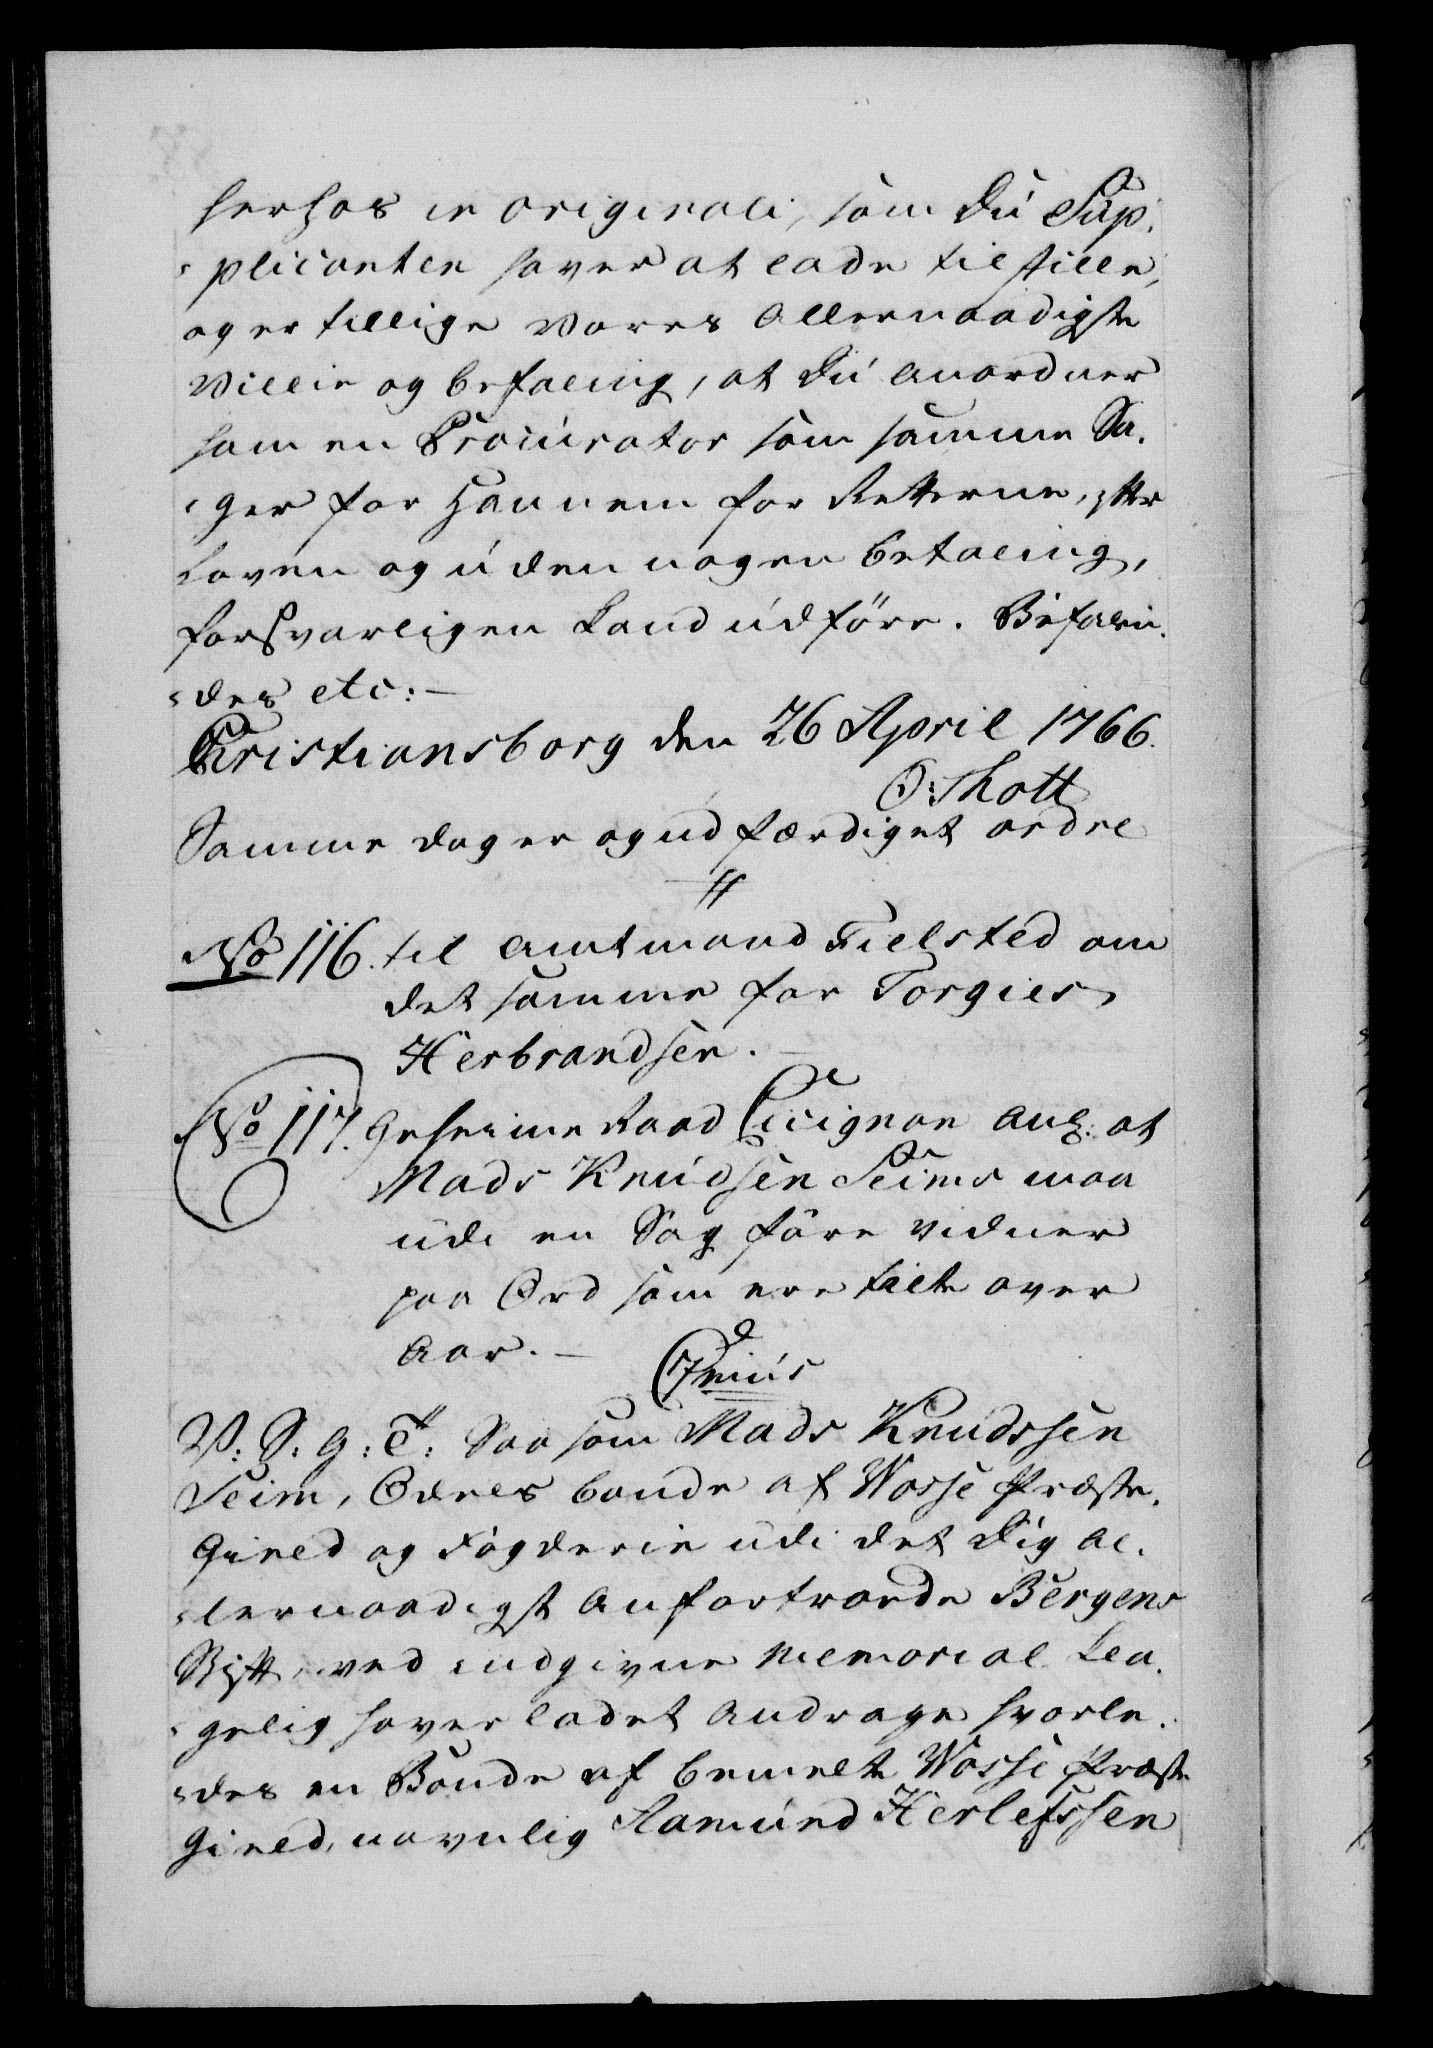 herhos in originali, som du Sup-
-plicanten haver at lade tilstille,
og er tillige Vores Allernaadigste
Villie og befaling, at du anordner
ham en Procurator som samme Sa-
-ger for hannem for Retterne, efter
Loven og uden nogen betaling,
forsvarligen kand udføre. Befalen-
-des etc:
Christiansborg den 26 April 1766.
O: Thott
Samme dag er og udfærdiget ordre
No 116. til Amtmand Fielsted om
det samme for Torgies
Herbrandsen.
No 117. Geheime Raad Cicignon Anl: at
Mads Knudsen Seims maa
udi en Sag føre vidner
paa Ord som ere talte over
Aar.
V: S: G: T: Saa som Mads Knudssen
Seim, Odels bonde af Wosse Præste-
Gield og Fogderie udi det dig al-
-lernaadigst anfortroede Bergens
Stift, ved indgivne Memorial kla-
-gelig haver ladet andrage hvorle-
-des en Bonde af bemelte Wosse Præste
Gield, navnlig Aamund Herlefssen